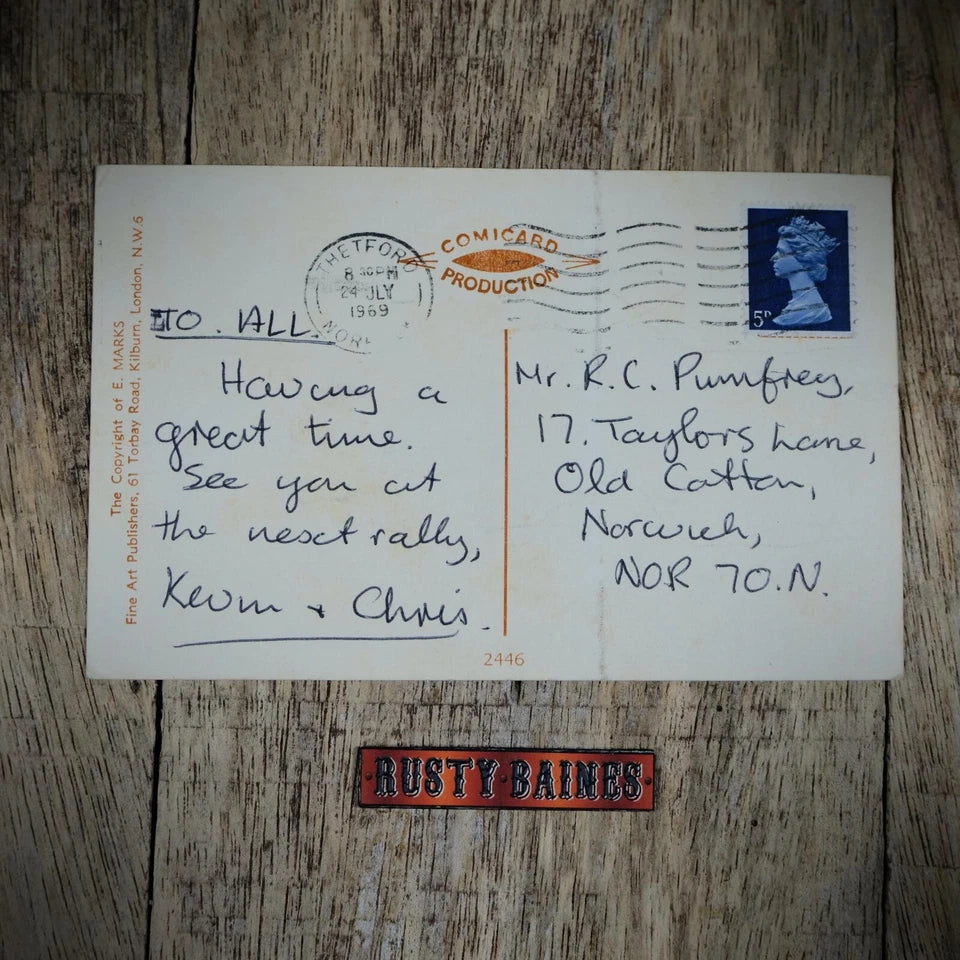 The Copyright of E. MARKS
Fine Art Publishers, 61 Torbay Road, Kilburn, London, N.W.6
THETFORD
8 30PM
24 JLY
1969
NOR
COMICARD
PRODUCTION
5D
TO. ALL.
Having a
great time.
See you at
the next rally,
Kevin + Chris.
Mr. R. C. Pumfrey,
17. Taylors Lane,
Old Catton,
Norwich,
NOR 70.N.
2446
RUSTY BAINES